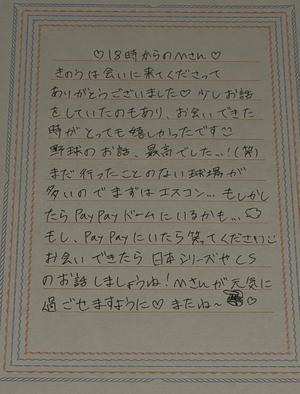 ♡18時からのMさん♡
きのうは会いに来てくださって
ありがとうございました♡少しお話
をしていたのもあり、お会いできた
時がとっても嬉しかったです☺
野球のお話、最高でした...!(笑)
まだ行ったことのない球場が
多いのでまずはエスコン...もしかし
たらPayPayドームにいるかも...
もし、PayPayにいたら笑ってください
お会いできたら日本シリーズやCS
のお話しましょうね!Mさんが元気に
過ごせますように♡またね〜♡